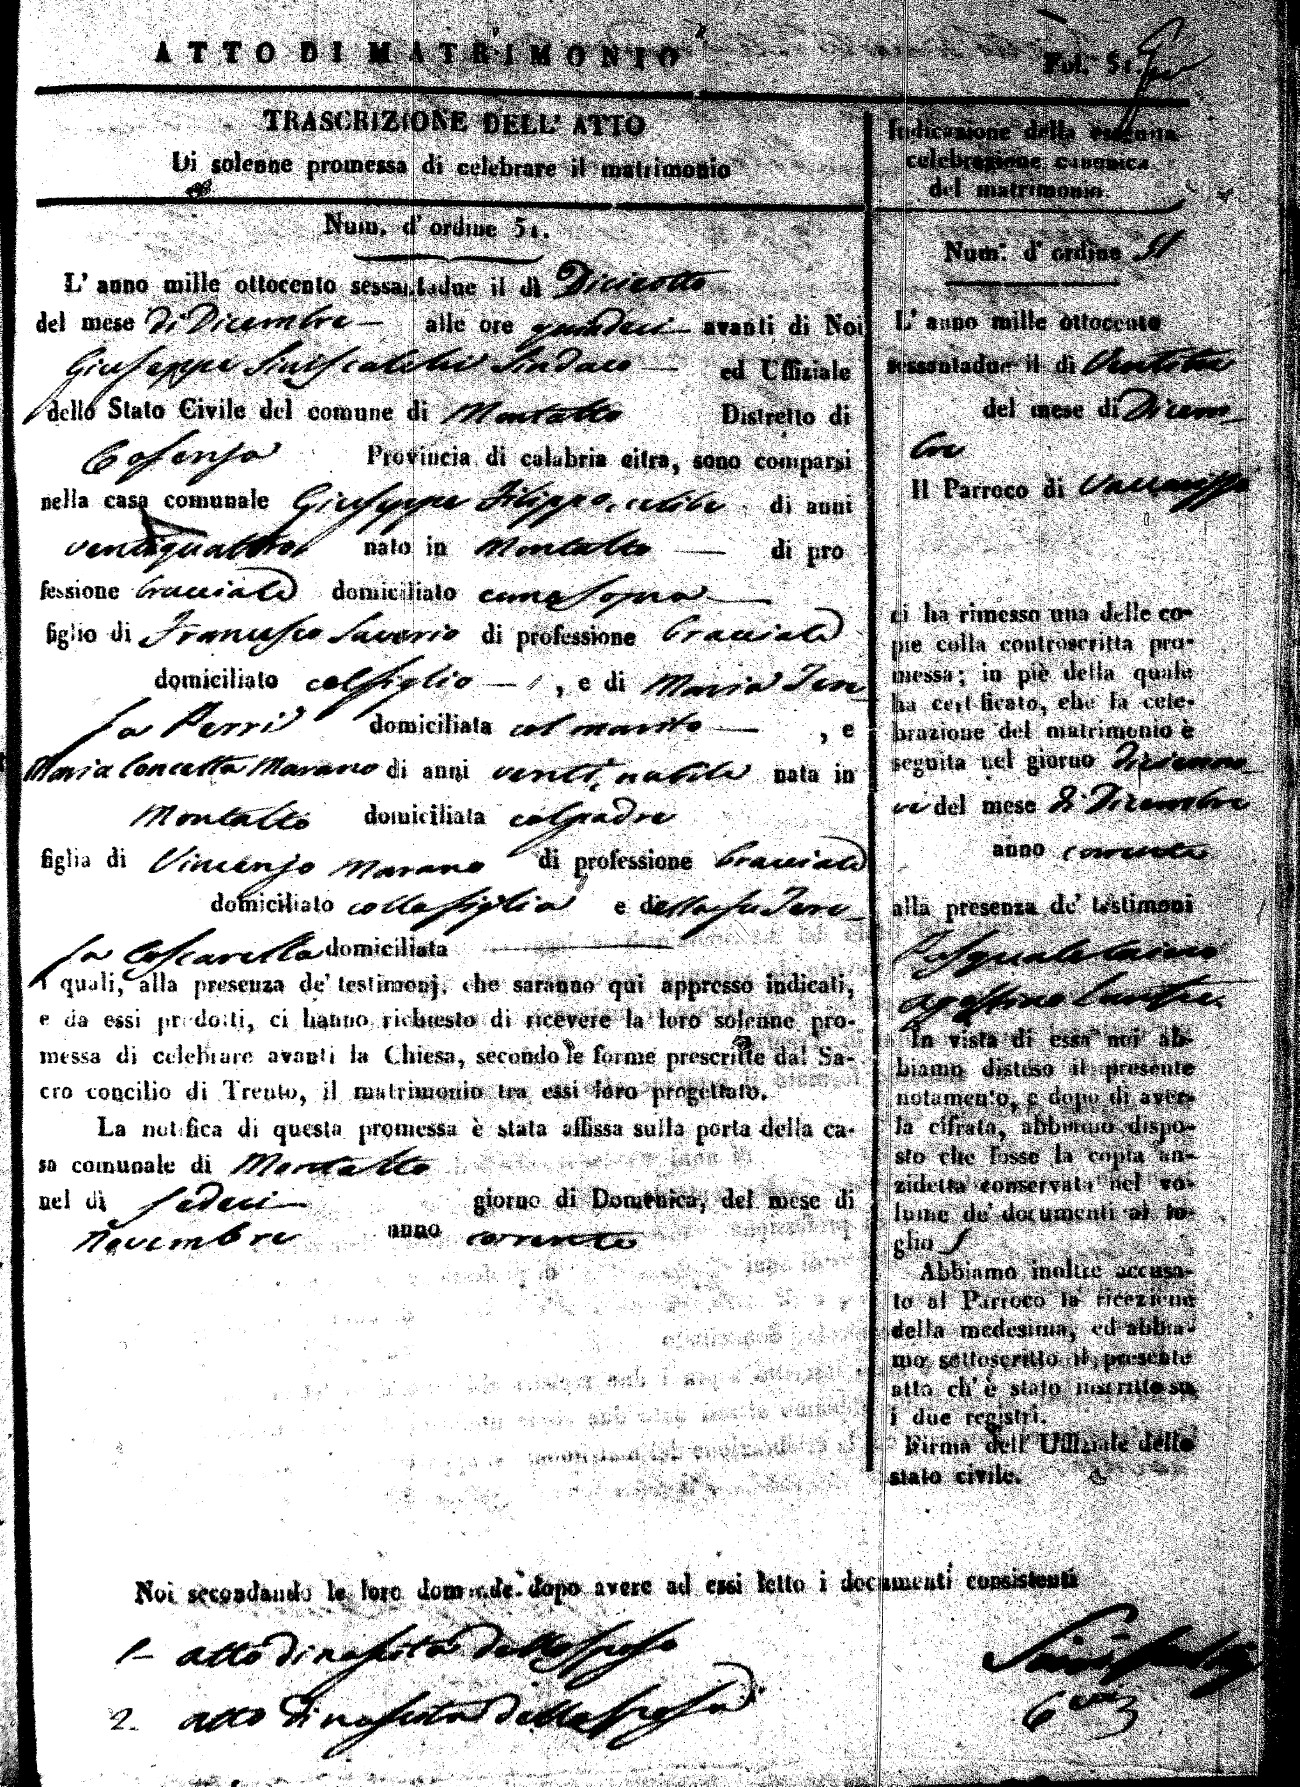 ATTO DI MATRIMONIO
Fol. 51
TRASCRIZIONE DELL' ATTO
Di solenne promessa di celebrare il matrimonio
Num. d' ordine 51.
L' anno mille ottocento sessantadue il dì Diciotto
del mese di Dicembre alle ore quindeci avanti di Noi
Giuseppe Siniscalchi Sindaco ed Uffiziale
dello Stato Civile del comune di Montalto Distretto di
Cosenza Provincia di calabria citra, sono comparsi
nella casa comunale Giuseppe Filippo, celibe di anni
ventiquattro nato in Montalto di pro
fessione bracciale domiciliato come sopra
figlio di Francesco Saverio di professione bracciale
domiciliato col figlio , e di Maria Tere
sa Perri domiciliata col marito , e
Maria Concetta Marano di anni venti, nubile nata in
Montalto domiciliata col padre
figlia di Vincenzo Marano di professione bracciale
domiciliato colla figlia e della fu Tere
sa Coscarella domiciliata
i quali, alla presenza de' testimonj, che saranno qui appresso indicati,
e da essi prodotti, ci hanno richiesto di ricevere la loro solenne pro-
messa di celebrare avanti la Chiesa, secondo le forme prescritte dal Sa-
cro concilio di Trento, il matrimonio tra essi loro progettato.
La notifica di questa promessa è stata affissa sulla porta della ca-
sa comunale di Montalto
nel dì sedeci giorno di Domenica, del mese di
Novembre anno corrente
Indicazione della seguita
celebrazione canonica
del matrimonio.
Num. d' ordine 51
L' anno mille ottocento
sessantadue il dì
del mese di Dicem-
bre
Il Parroco di Vaccarizzo
ci ha rimesso una delle co-
pie colla controscritta pro-
messa; in piè della quale
ha certificato, che la cele-
brazione del matrimonio è
seguita nel giorno dicienno
ve del mese di Dicembre
anno corrente
alla presenza de' testimoni
Pasquale
Agostino
In vista di essa noi ab-
biamo disteso il presente
notamento, e dopo di aver-
la cifrata, abbiamo dispo-
sto che fosse la copia an-
zidetta conservata nel vo-
lume de' documenti al fo-
glio
Abbiamo inoltre accusa-
to al Parroco la ricezione
della medesima, ed abbia-
mo sottoscritto il presente
atto ch' è stato inscritto su
i due registri.
Firma dell' Uffiziale dello
stato civile.
Noi secondando le loro domande dopo avere ad essi letto i documenti consistenti
1- atto di nascita dello sposo
2. atto di nascita della sposa
Siniscalchi